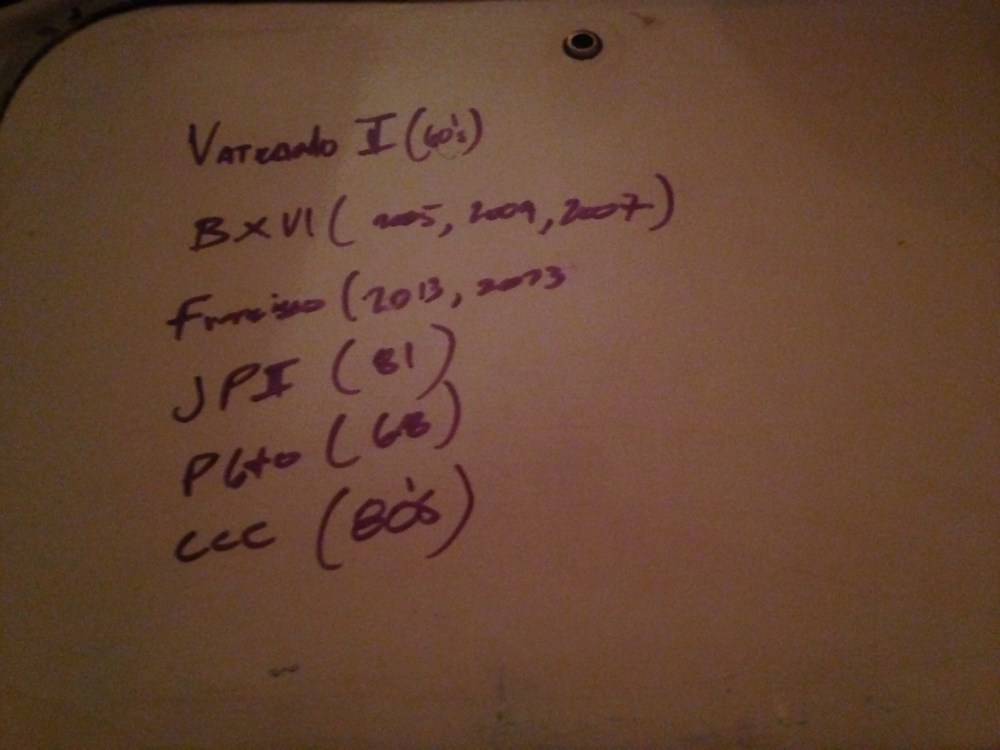 Vaticano II (60's)
BXVI (2005, 2009, 2007)
Francisco (2013, 2013
JPII (81)
P6to (68)
CCC (80's)